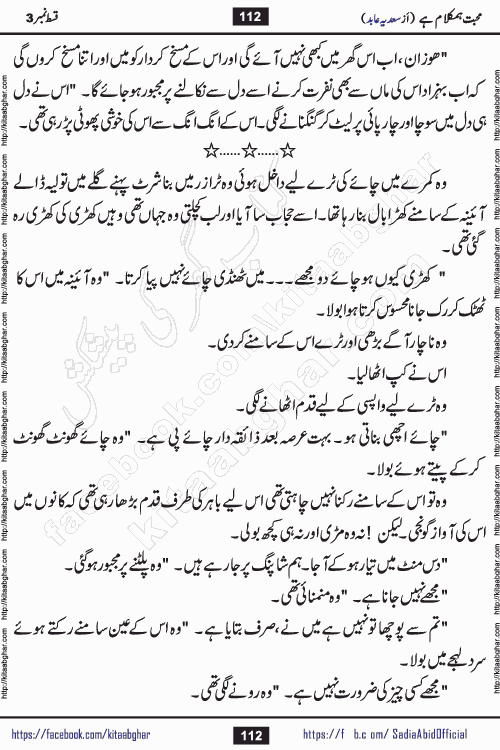 محبت ہمکلام ہے (از سعدیہ عابد) 112 قسط نمبر 3
"ھوزان، اب اس گھر میں کبھی نہیں آئے گی اور اس کے مسخ کردار کو میں اور اتنا مسخ کروں گی
کہ اب بہزاد اس کی ماں سے بھی نفرت کرنے اسے دل سے نکالنے پر مجبور ہو جائے گا۔ "اس نے دل
ہی دل میں سوچا اور چارپائی پر لیٹ کر گنگنانے لگی۔ اس کے انگ انگ سے اس کی خوشی پھوٹی پڑ رہی تھی۔
☆......☆......☆
وہ کمرے میں چائے کی ٹرے لیے داخل ہوئی وہ ٹراؤزر میں بنا شرٹ پہنے گلے میں تولیہ ڈالے
آئینہ کے سامنے کھڑا بال بنا رہا تھا۔ اسے حجاب سا آیا اور لب کچلتی وہ جہاں تھی وہیں کھڑی کی کھڑی رہ
گئی تھی۔
"کھڑی کیوں ہو چائے دو مجھے۔۔۔ میں ٹھنڈی چائے نہیں پیا کرتا۔ "وہ آئینہ میں اس کا
ٹھٹک کر رک جانا محسوس کرتا ہوا بولا۔
وہ ناچار آگے بڑھی اور ٹرے اس کے سامنے کر دی۔
اس نے کپ اٹھا لیا۔
وہ ٹرے لیے واپسی کے لیے قدم اٹھانے لگی۔
"چائے اچھی بناتی ہو۔ بہت عرصہ بعد ذائقہ دار چائے پی ہے۔ "وہ چائے گھونٹ گھونٹ
کر کے پیتے ہوئے بولا۔
وہ تو اس کے سامنے رکنا نہیں چاہتی تھی اس لیے باہر کی طرف قدم بڑھا رہی تھی کہ کانوں میں
اس کی آواز گونجی۔ لیکن! نہ وہ مڑی اور نہ ہی کچھ بولی۔
"دس منٹ میں تیار ہو کے آجا۔ ہم شاپنگ پر جا رہے ہیں۔ "وہ پلٹنے پر مجبور ہو گئی۔
"مجھے نہیں جانا ہے۔ "وہ منمنائی تھی۔
"تم سے پوچھا تو نہیں ہے میں نے، صرف بتایا ہے۔ "وہ اس کے عین سامنے رکتے ہوئے
سرد لہجے میں بولا۔
"مجھے کسی چیز کی ضرورت نہیں ہے۔ "وہ رونے لگی تھی۔
https://facebook.com/kitaabghar 112 https://fb.com/SadiaAbidOfficial
http://kitaabghar.com
کتاب گھر کی پیشکش
kitaabghar.com
facebook.com/kitaabghar